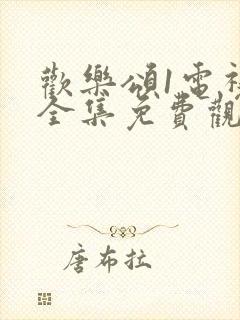 歡樂頌1電視
全集免費觀
唐布拉